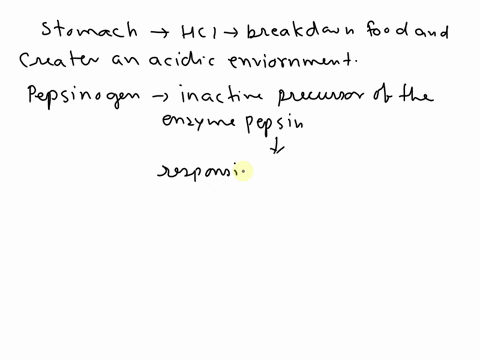 Stomach → HCl → breakdown food and
Creater an acidic enviornment.
Pepsinogen → inactive precursor of the
enzyme pepsin
↓
responsi